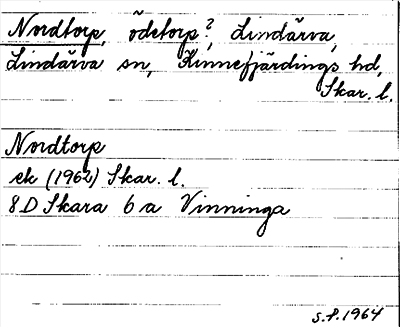 Nordtorp, ödetorp?, Lindärva,
Lindärva sn, Kinnefjärdings hd,
Skar. l.
Nordtorp
ek (1962) Skar. l.
8D Skara 6a Vinninga
S.P. 1964